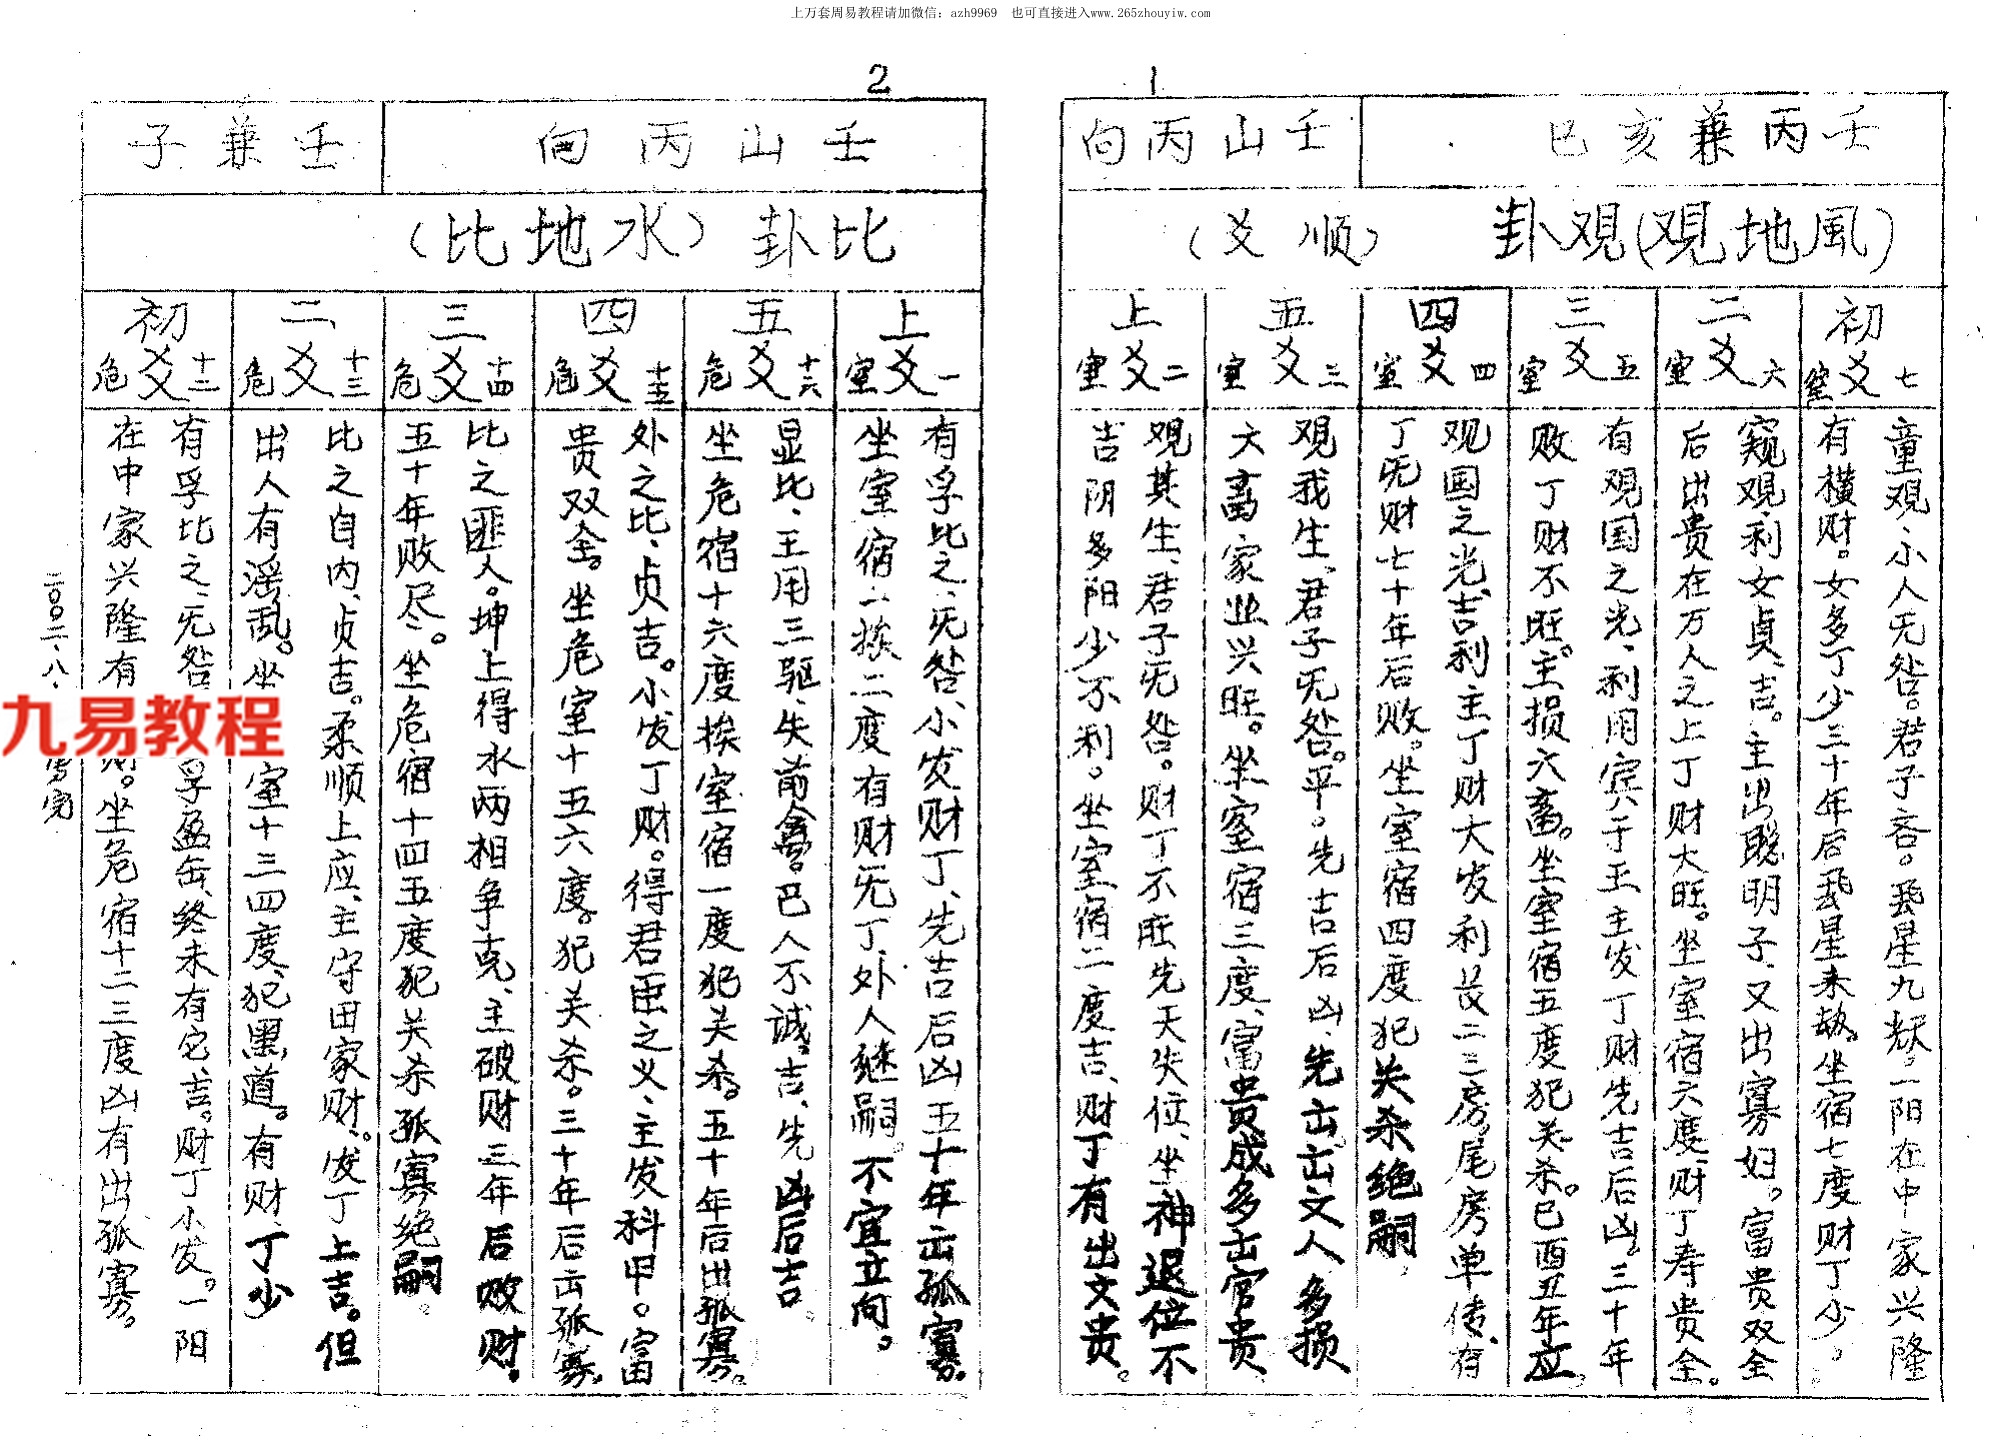 上万套周易教程请加微信：azh9969　也可直接进入www.265zhouyiw.com
1
壬丙兼亥巳
壬山丙向
風地观(观卦
(顺爻)
初爻 七 室
童观、小人无咎。君子吝。
一阳在中家兴隆
有横财。女多丁少三十年后
星来劫。坐宿七度财丁少。
二爻 六 室
窥观、利女贞、吉。主出聪明子、又出寡妇。富贵双全
后出贵在万人之上丁财大旺。坐室宿六度、财丁寿贵全。
三爻 五 室
有观国之光、利用宾于王主发丁财先吉后凶、三十年
败丁财不旺。主损六畜。坐室宿五度犯关杀。巳酉丑年应
四爻 四 室
观国之光、吉利主丁财大发利长二三房、尾房单传、有
丁无财七十年后败。坐室宿四度犯关杀绝嗣。
五爻 三 室
观我生、君子无咎。平。先吉后凶、先出出文人多损
六畜家业兴旺。坐室宿三度、富贵成多出官贵
上爻 二 室
观其生、君子无咎。财丁不旺先天失位、坐神退位不
吉阴多阳少不利。坐室宿二度吉、财丁有出文贵。
2
壬山丙向
壬兼子
比卦（水地比）
上爻 一 室
有孚比之、无咎、小发财丁、先吉后凶五十年出孤寡。
坐室宿一挨二度有财无丁、外人继嗣。不宜立向。
五爻 十六 危
显比、王用三驱、失前禽。巳人不诚。吉、先凶后吉
坐危宿十六度挨室宿一度犯关杀。五十年后出孤寡。
四爻 十五 危
外之比、贞吉。小发丁财。得君臣之义、主发科甲。富
贵双全。坐危室十五六度。犯关杀。三十年后出孤寡。
三爻 十四 危
比之匪人。坤上得水两相争克、主破财三年后败财。
五十年败尽。坐危宿十四五度犯关杀孤寡绝嗣。
二爻 十三 危
比之自内、贞吉。柔顺上应、主守田家财。发丁上吉。但
出人有淫乱。坐室十三四度、犯黑道。有财、丁少
初爻 十二 危
有孚比之、无咎
孚盈缶、终未有它、吉。财丁小发。一阳
在中家兴隆有
。坐危宿十二三度凶有出孤寡。
二00二、八、
完
九易教程